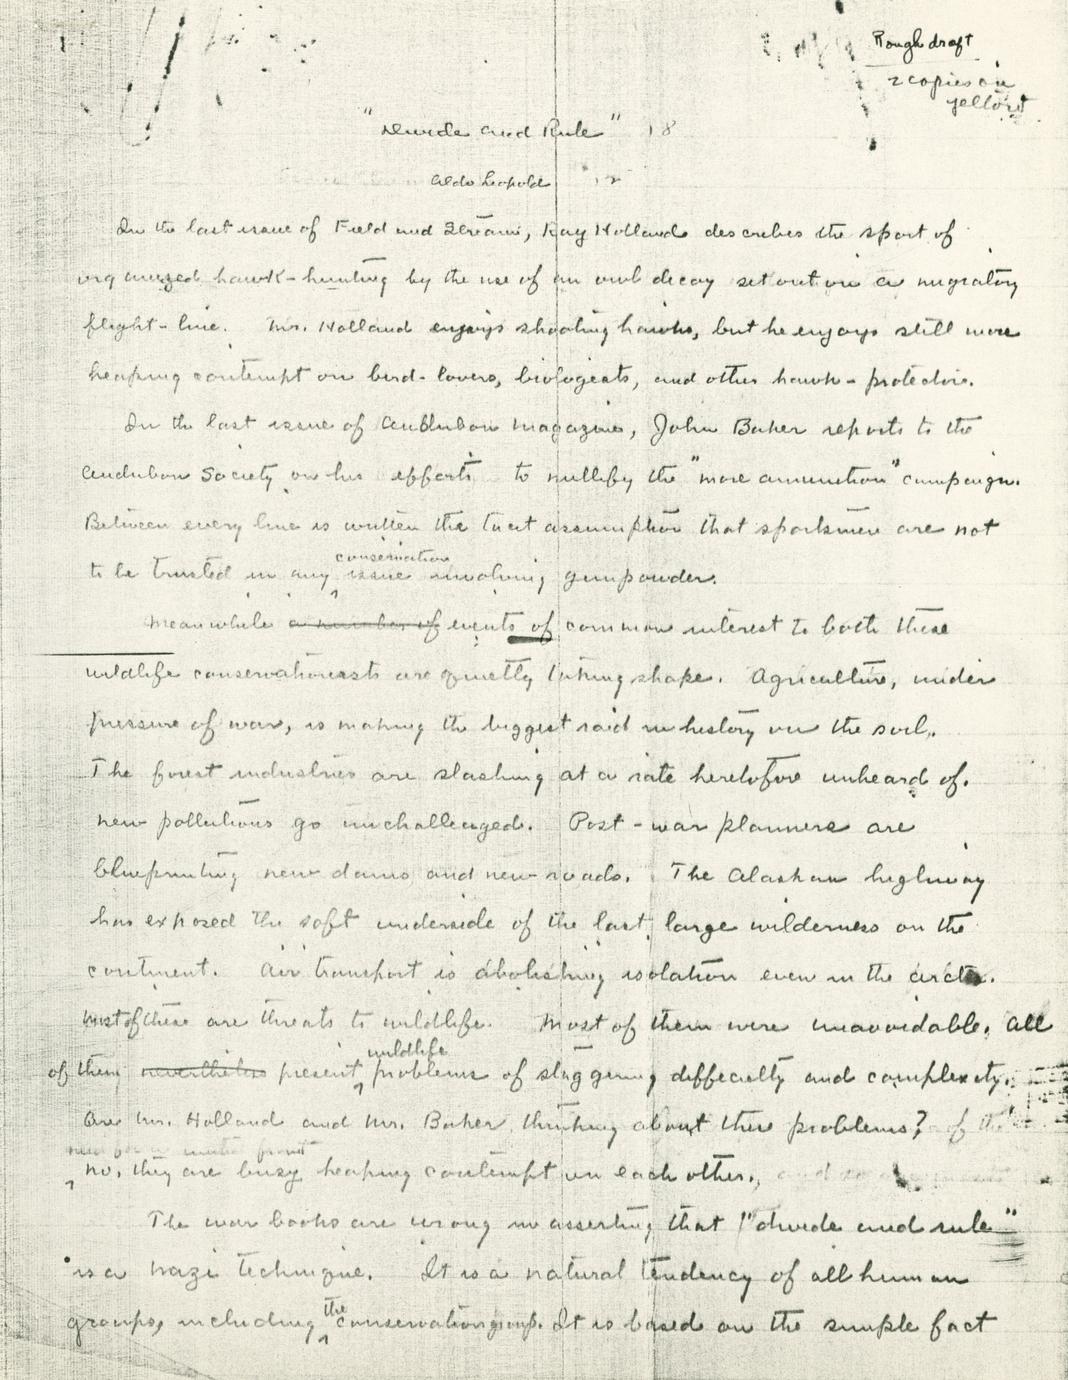 Rough draft
2 copies on
yellow
"Divide and Rule" 18
Aldo Leopold
In the last issue of Field and Stream, Ray Holland describes the sport of
organized hawk-hunting by the use of an owl decoy set out in a migratory
flight-line. Mr. Holland enjoys shooting hawks, but he enjoys still more
heaping contempt on bird-lovers, biologists, and other hawk-protectors.
In the last issue of Audubon Magazine, John Baker reports to the
Audubon Society on his efforts to nullify the "more ammunition" campaign.
Between every line is written the tacit assumption that sportsmen are not
conservation
to be trusted in any issue involving gunpowder.
Meanwhile a number of events of common interest to both these
wildlife conservationists are quietly taking shape. Agriculture, under
pressure of war, is making the biggest raid in history on the soil.
The forest industries are slashing at a rate heretofore unheard of.
New pollutions go unchallenged. Post-war planners are
blueprinting new dams and new roads. The Alaskan highway
has exposed the soft underside of the last large wilderness on the
continent. Air transport is abolishing isolation even in the arctic.
Most of these are threats to wildlife. Most of them were unavoidable. All
wildlife
of them nevertheless present problems of staggering difficulty and complexity.
Are Mr. Holland and Mr. Baker thinking about these problems? of the
need for a united front
No, they are busy heaping contempt on each other.
The war books are wrong in asserting that "divide and rule"
is a Nazi technique. It is a natural tendency of all human
the
groups, including conservation group. It is based on the simple fact